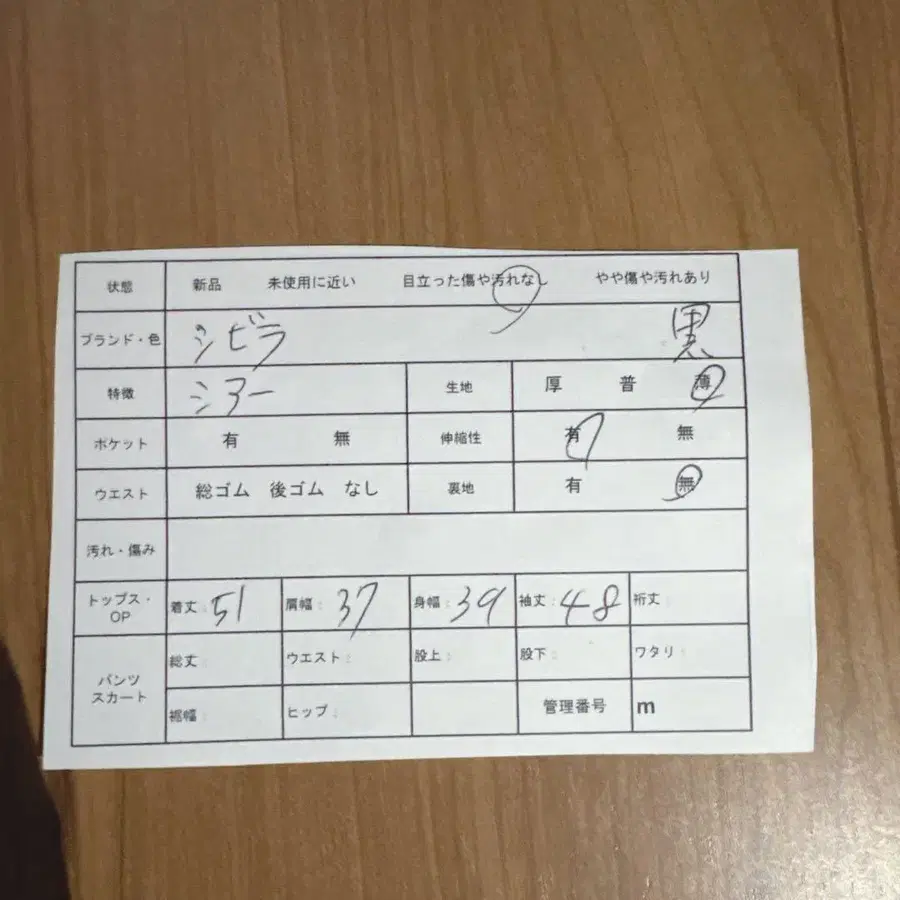 状態 新品 未使用に近い 目立った傷や汚れなし やや傷や汚れあり
ブランド・色 シビラ 黒
特徴 シアー 生地 厚 普 薄
ポケット 有 無 伸縮性 有 無
ウエスト 総ゴム 後ゴム なし 裏地 有 無
汚れ・傷み
トップス・OP 着丈: 51 肩幅: 37 身幅: 39 袖丈: 48 裄丈:
パンツ スカート 総丈: ウエスト: 股上: 股下: ワタリ:
裾幅: ヒップ: 管理番号 m